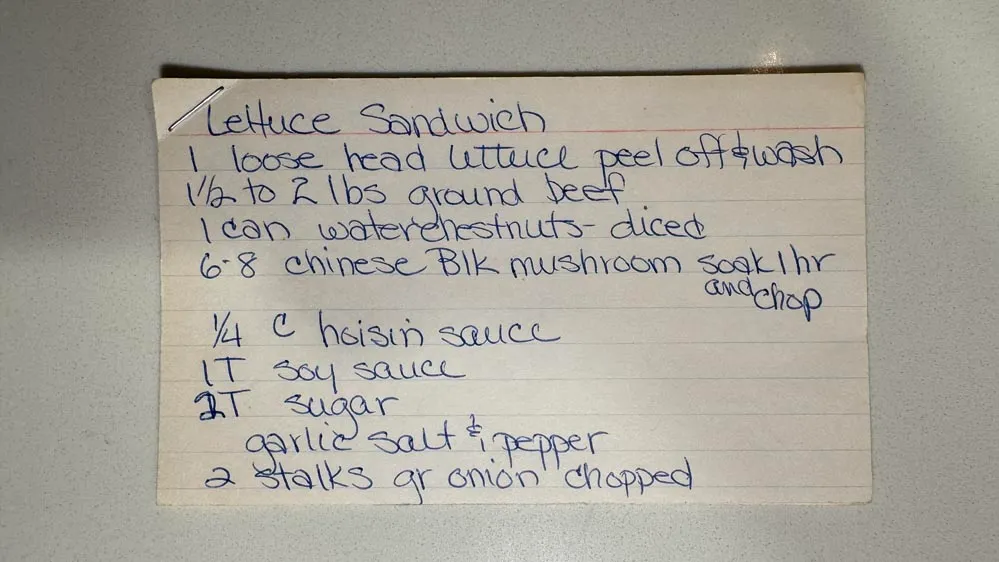 Lettuce Sandwich
1 loose head lettuce peel off & wash
1½ to 2 lbs ground beef
1 can waterchestnuts - diced
6-8 chinese Blk mushroom soak 1hr
and chop
¼ C hoisin sauce
1T soy sauce
2T sugar
garlic salt & pepper
2 stalks gr onion chopped